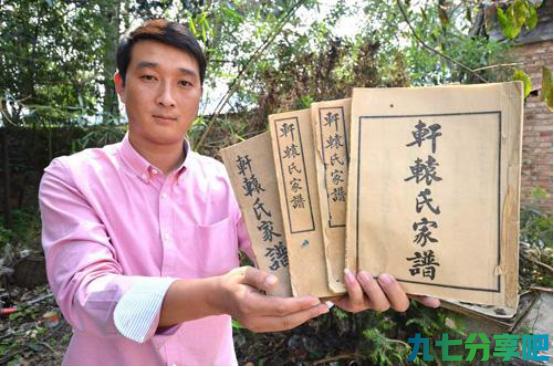 軒轅氏家譜
軒轅氏家譜
軒轅氏家譜
軒轅氏家譜
九七分享吧